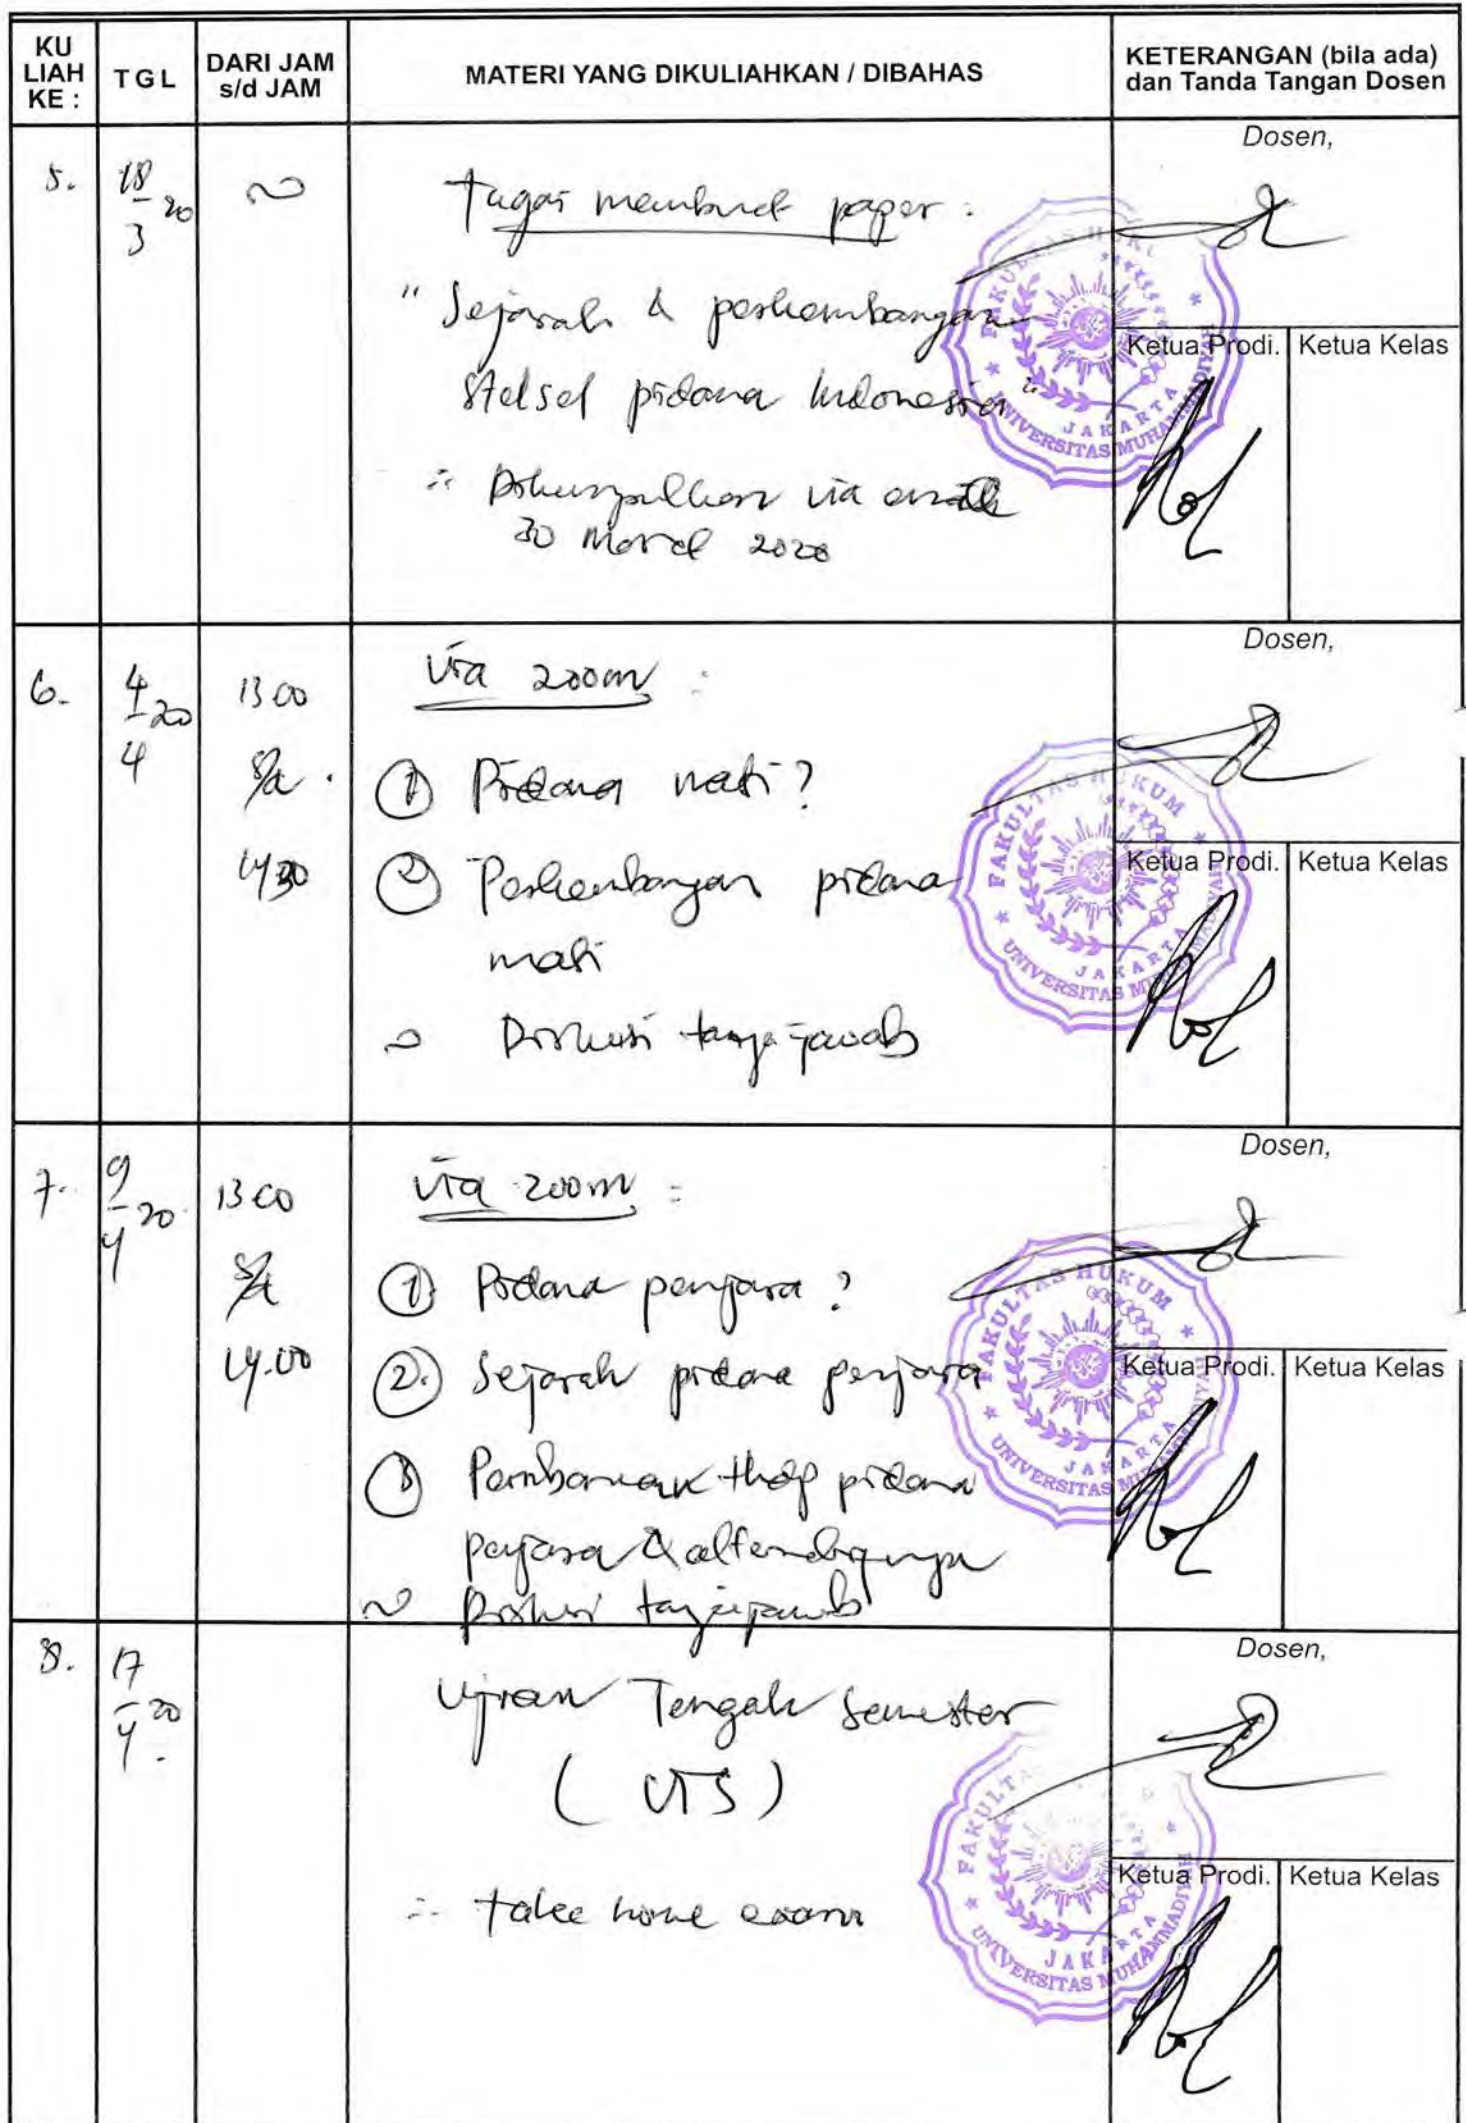 KU LIAH KE : TGL DARI JAM s/d JAM MATERI YANG DIKULIAHKAN / DIBAHAS KETERANGAN (bila ada) dan Tanda Tangan Dosen
5. 18/3 20
Tugas membuat paper :
" Sejarah & perkembangan
Stelsel pidana Indonesia "
∴ Dikumpulkan via email
30 Maret 2020
Dosen,
Ketua Prodi. Ketua Kelas
FAKULTAS HUKUM
UNIVERSITAS MUHAMMADIYAH
JAKARTA
6. 4/4 20 13 00 s/d 14 30
via zoom :
① Pidana mati ?
② Perkembangan pidana
mati
Diskusi tanya jawab
Dosen,
Ketua Prodi. Ketua Kelas
FAKULTAS HUKUM
UNIVERSITAS MUHAMMADIYAH
JAKARTA
7. 9/4 20 13 00 s/d 14.00
via zoom :
① Pidana penjara ?
② Sejarah pidana penjara
③ thdp pidana
penjara & alternatifnya
Diskusi tanya jawab
Dosen,
Ketua Prodi. Ketua Kelas
FAKULTAS HUKUM
UNIVERSITAS MUHAMMADIYAH
JAKARTA
8. 17/4 20
Ujian Tengah Semester
( UTS )
∴ take home exam
Dosen,
Ketua Prodi. Ketua Kelas
FAKULTAS
UNIVERSITAS MUHAMMADIYAH
JAKARTA